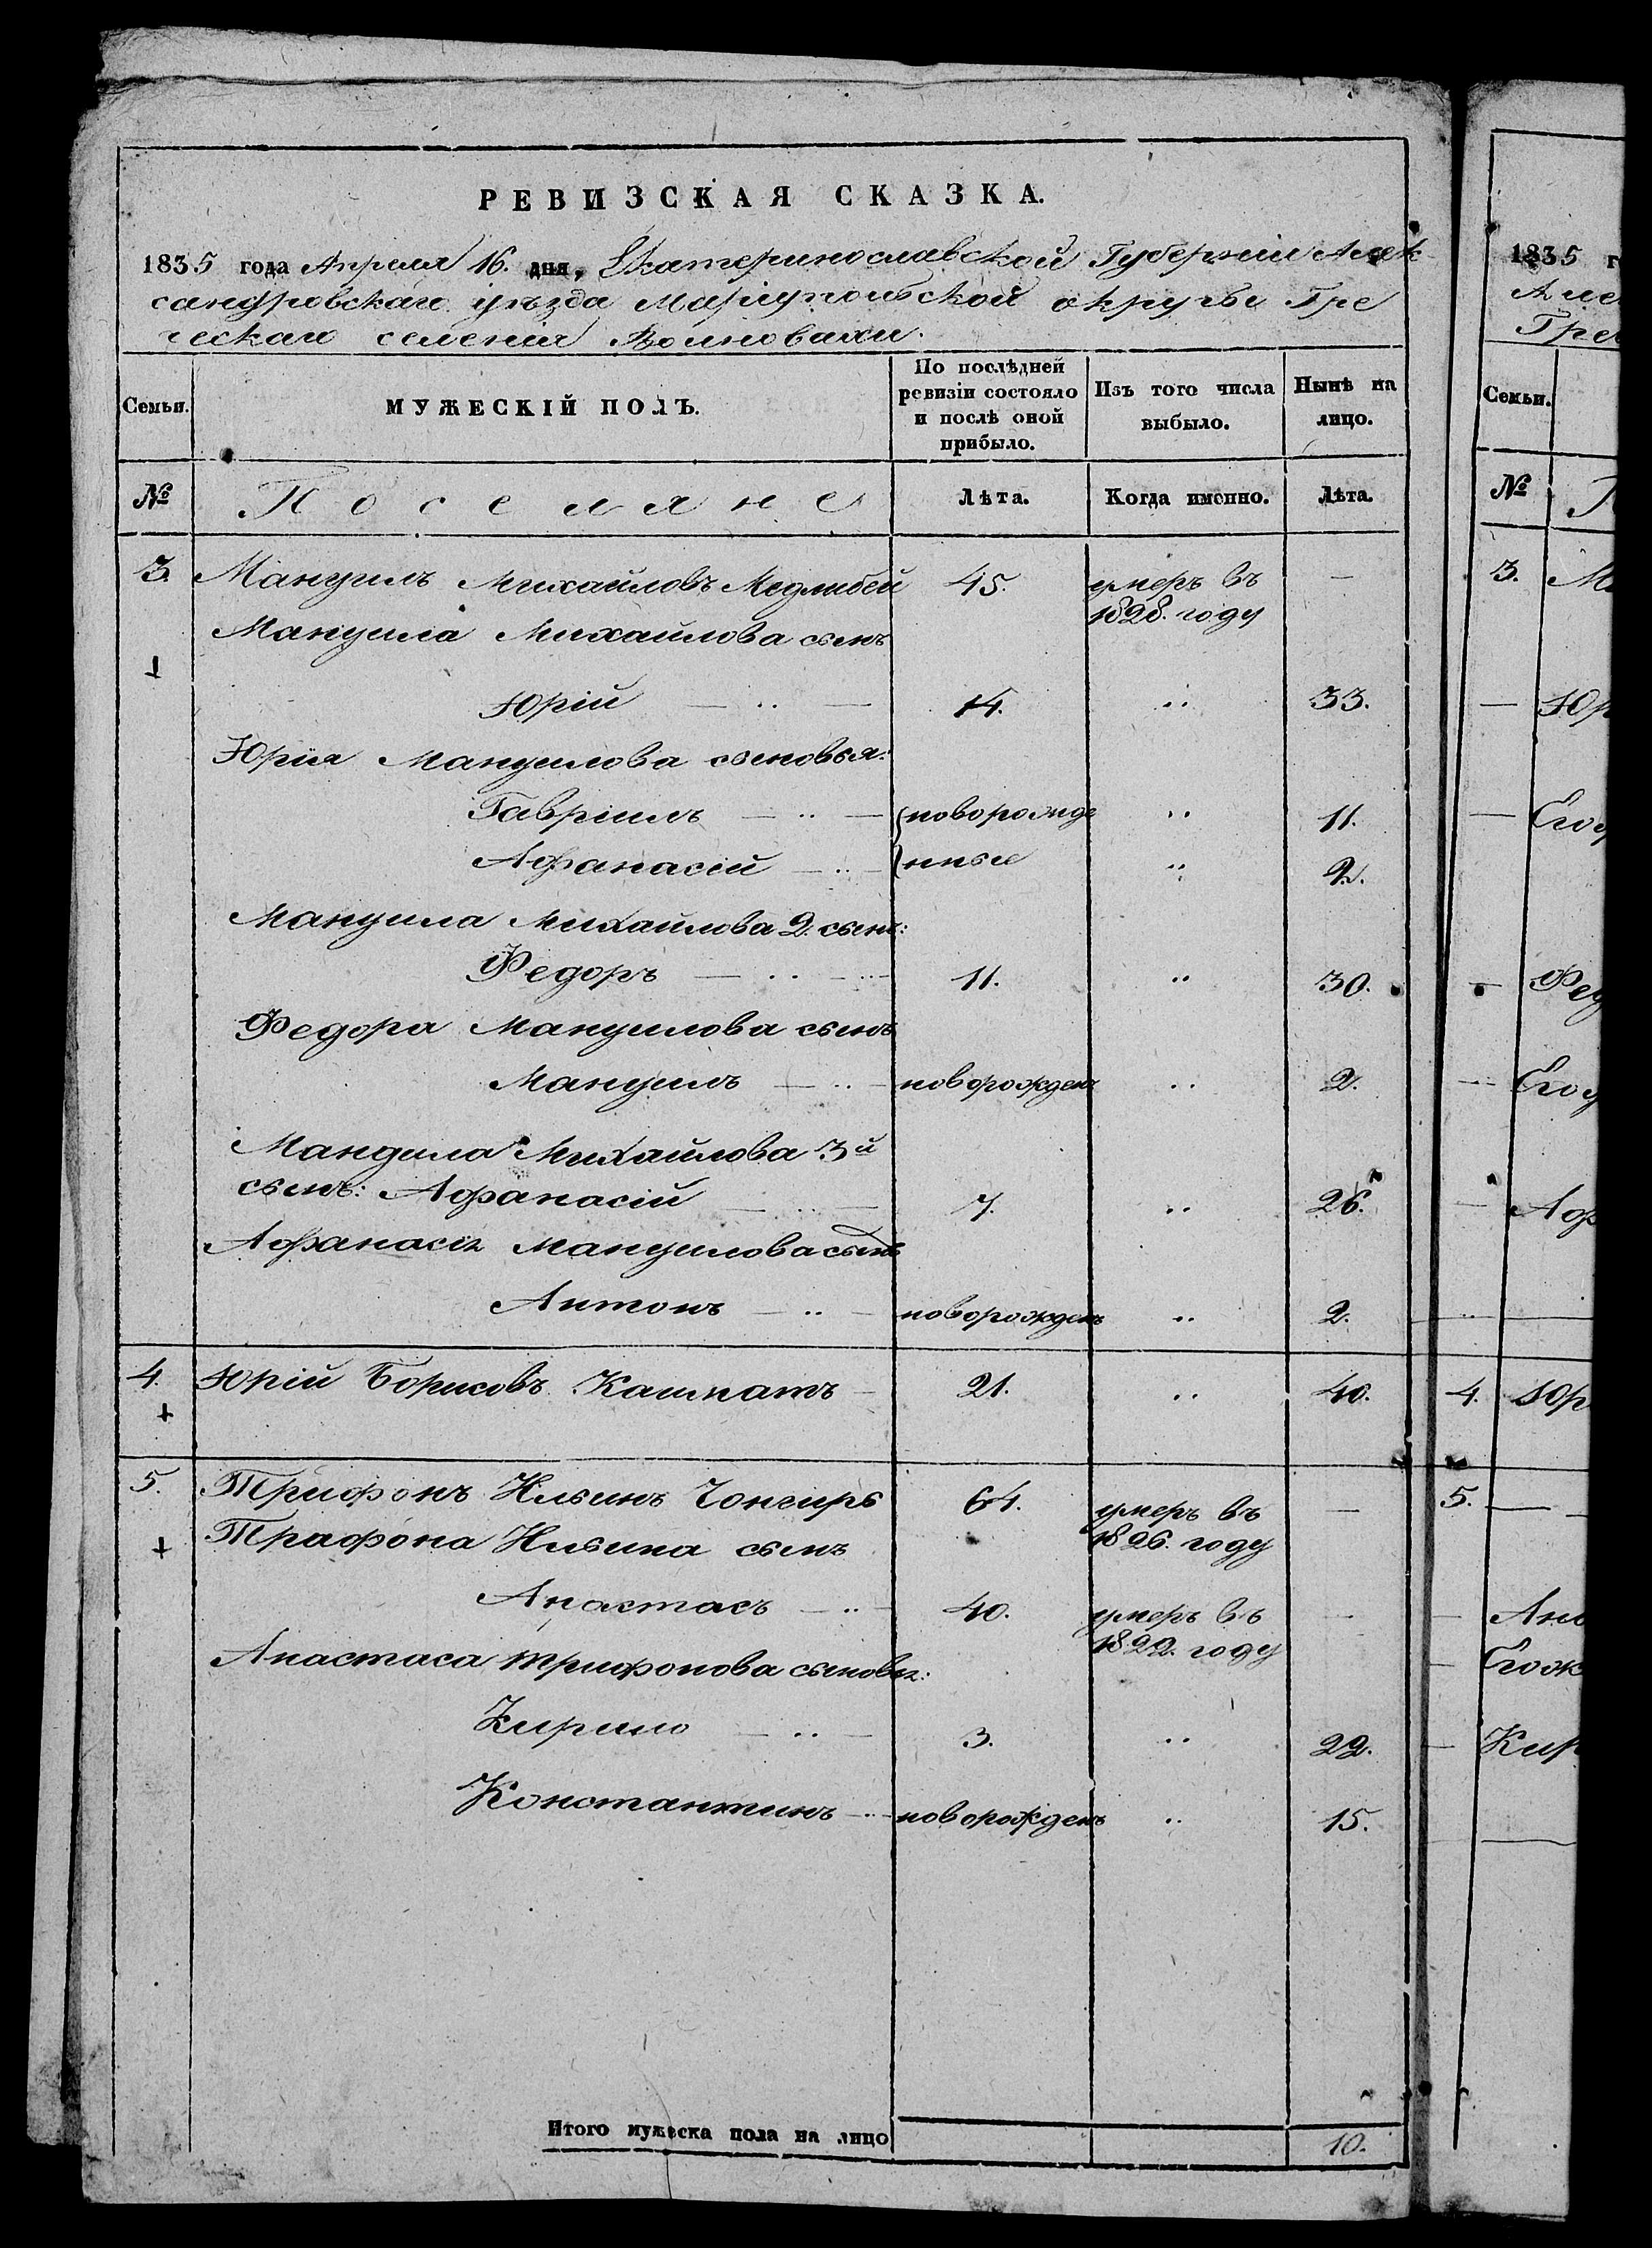 РЕВИЗСКАЯ СКАЗКА.
1835 года Апреля 16. дня, Екатеринославской Губернии Алек
сандровскаго уѣзда Мариупольской округи Гре
ческаго селенія Волновахи.
Семьи. МУЖЕСКІЙ ПОЛЪ. По послѣдней ревизіи состояло и послѣ оной прибыло. Изъ того числа выбыло. Нынѣ на лицо.
№ Поселяне Лѣта. Когда именно. Лѣта.
3. Мануилъ Михайловъ Медлибей 45. умеръ въ 1828. году —
Мануила Михайлова сынъ
Юрій 14. 33.
Юрія Мануилова сыновья:
Гавріилъ новорожде 11.
Афанасій нные 2.
Мануила Михайлова 2. сынъ:
Федоръ 11. 30.
Федора Мануилова сынъ
Мануилъ новорожденъ 2.
Мануила Михайлова 3й
сынъ: Афанасій 7. 26.
Афанасія Мануилова сынъ
Антонъ новорожденъ 2.
4. Юрій Борисовъ Кашкатъ 21. 40.
5. Трифонъ Ильинъ Чонгиръ 64. умеръ въ 1826. году —
Трифона Ильина сынъ
Анастасъ 40. умеръ въ 1822. году —
Анастаса Трифонова сыновья:
Кирило 3. 22.
Константинъ новорожденъ 15.
Итого мужеска пола на лицо 10.
1835 г
Але
Гре
Семьи.
№ П
3. М
Юр
Его
Фед
Его
Аф
4. Юр
5. —
Ана
Его ж
Кир